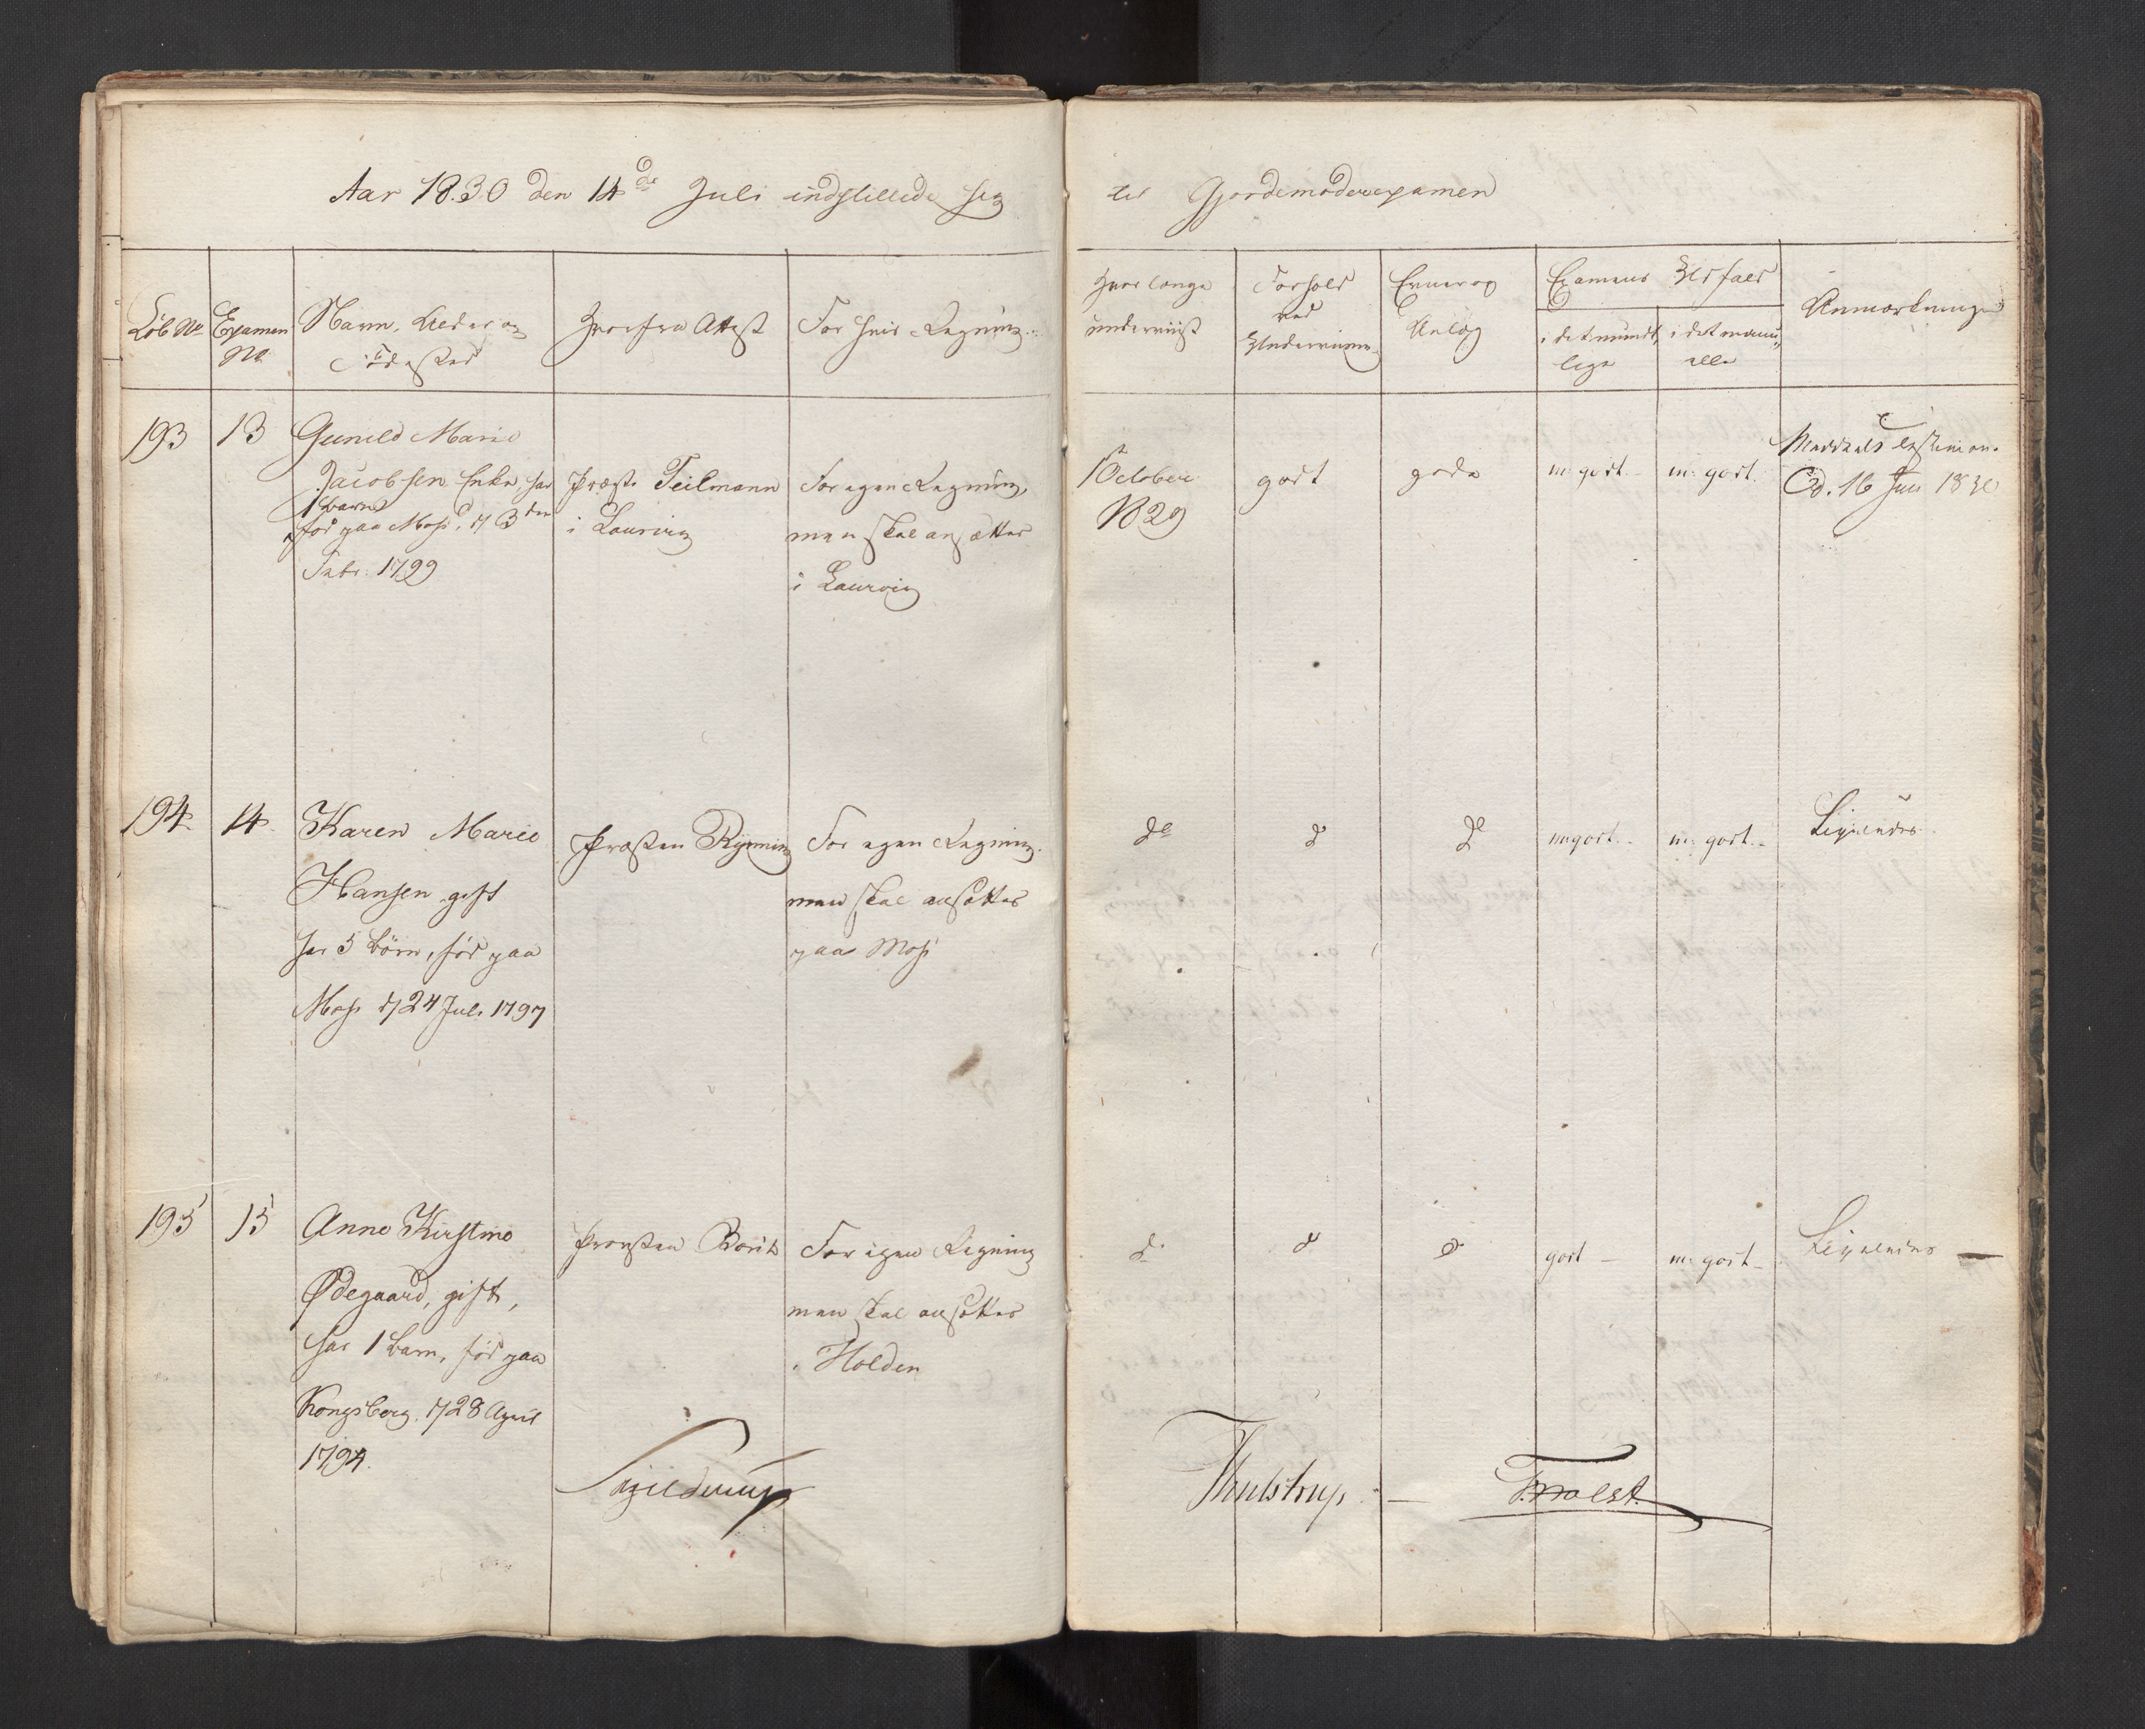 Aar 1830 den 14de Juli indstillede sig
til Gjordemoderexamen
Løb No
Examen
No
Navn, Alder og
Fødested
Hvorfra Attest
For hvis Regning
Hvorlænge
underviist
Forhold
ved
Underviisn.
Evner og
Anlæg
Examens Udfald
i det mundt,
lige
i det manu,,
elle
Anmærkninger
193
13
Gunild Marie
Jacobsen Enke, har
1 Barn
fød paa Moss, d/ 3den
Febr. 1799
Præst Teilmann
i Laurvig
For egen Regning,
men skal ansættes
i Laurvig
1 October
1829
godt
gode
m: godt.
m: godt.
Meddeelt Testimon.
Cd. 16 Juli 1830
194
14.
Karen Marie
Hansen, gift
har 5 Børn, fød paa
Moss d/ 24 Juli 1797
Præsten Rynning
For egen Regning.
men skal ansættes
paa Moss
do
d
do
m godt.
m: godt.
Ligeledes
195
15
Anne Kirstine
Ødegaard, gift,
har 1 Barn, fød paa
Kongsberg, d/ 28 April
1794.
Provsten
For egen Regning
men skal ansættes
i Holden
d.
d
d
godt
m: godt
Ligeledes
Skjelderup
Thulstrup
F. Holst.